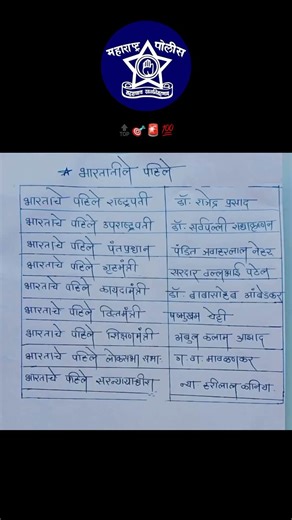 महाराष्ट्र पोलीस
सद्रक्षणाय खलनिग्रहणाय
TOP 100
★ भारतातील पहिले
भारताचे पहिले राष्ट्रपती डॉ. राजेंद्र प्रसाद
भारताचे पहिले उपराष्ट्रपती डॉ. सर्वपल्ली राधाकृष्णन
भारताचे पहिले पंतप्रधान पंडित जवाहरलाल नेहरू
भारताचे पहिले गृहमंत्री सरदार वल्लभभाई पटेल
भारताचे पहिले कायदामंत्री डॉ. बाबासाहेब आंबेडकर
भारताचे पहिले वित्तमंत्री षण्मुखम चेट्टी
भारताचे पहिले शिक्षणमंत्री अबुल कलाम आझाद
भारताचे पहिले लोकसभा सभा. ग वा मावळणकर
भारताचे पहिले सरन्यायाधीश न्या हरीलाल कनिया